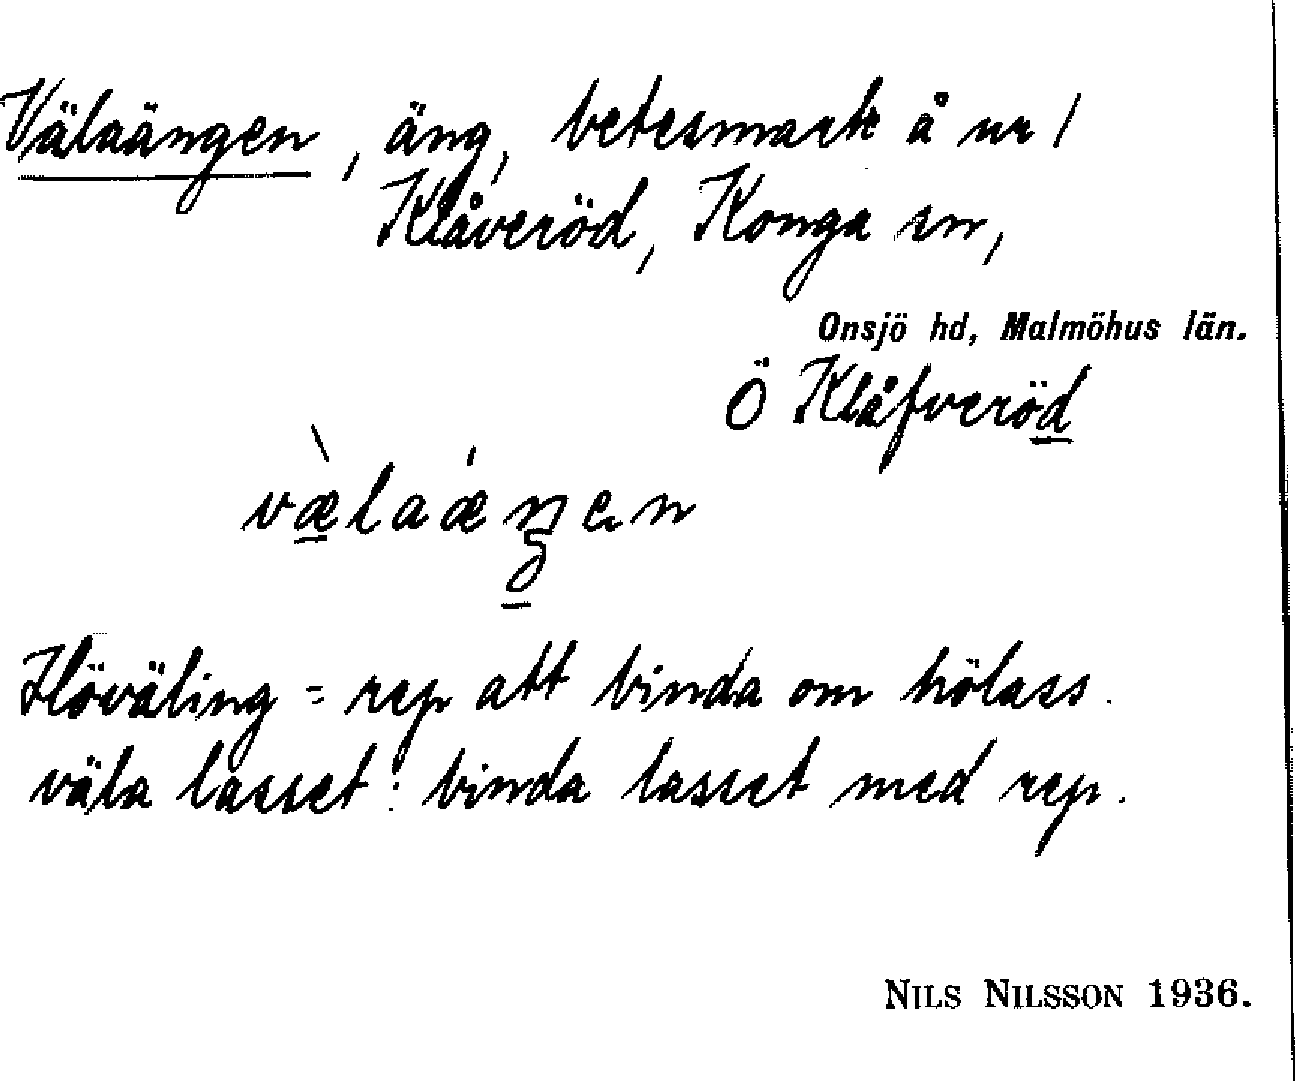 Välaängen, äng, betesmark å nr 1
Klåveröd, Konga sn,
Onsjö hd, Malmöhus län.
Ö Klåfveröd
vælaæŋen
Höväling = rep att binda om hölass.
väla lasset: binda lasset med rep.
NILS NILSSON 1936.